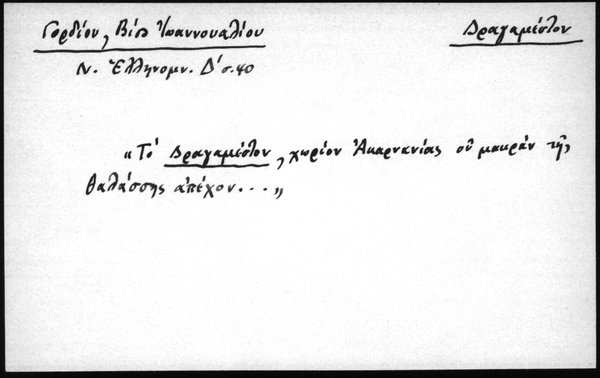 Γορδίου, Βίος Ἰωαννουαλίου
Δραγαμέστον
Ν. Ἑλληνομν. Δ' σ. 40
« Τὸ Δραγαμέστον, χωρίον Ἀκαρνανίας οὐ μακρὰν τῆς
θαλάσσης ἀπέχον... »